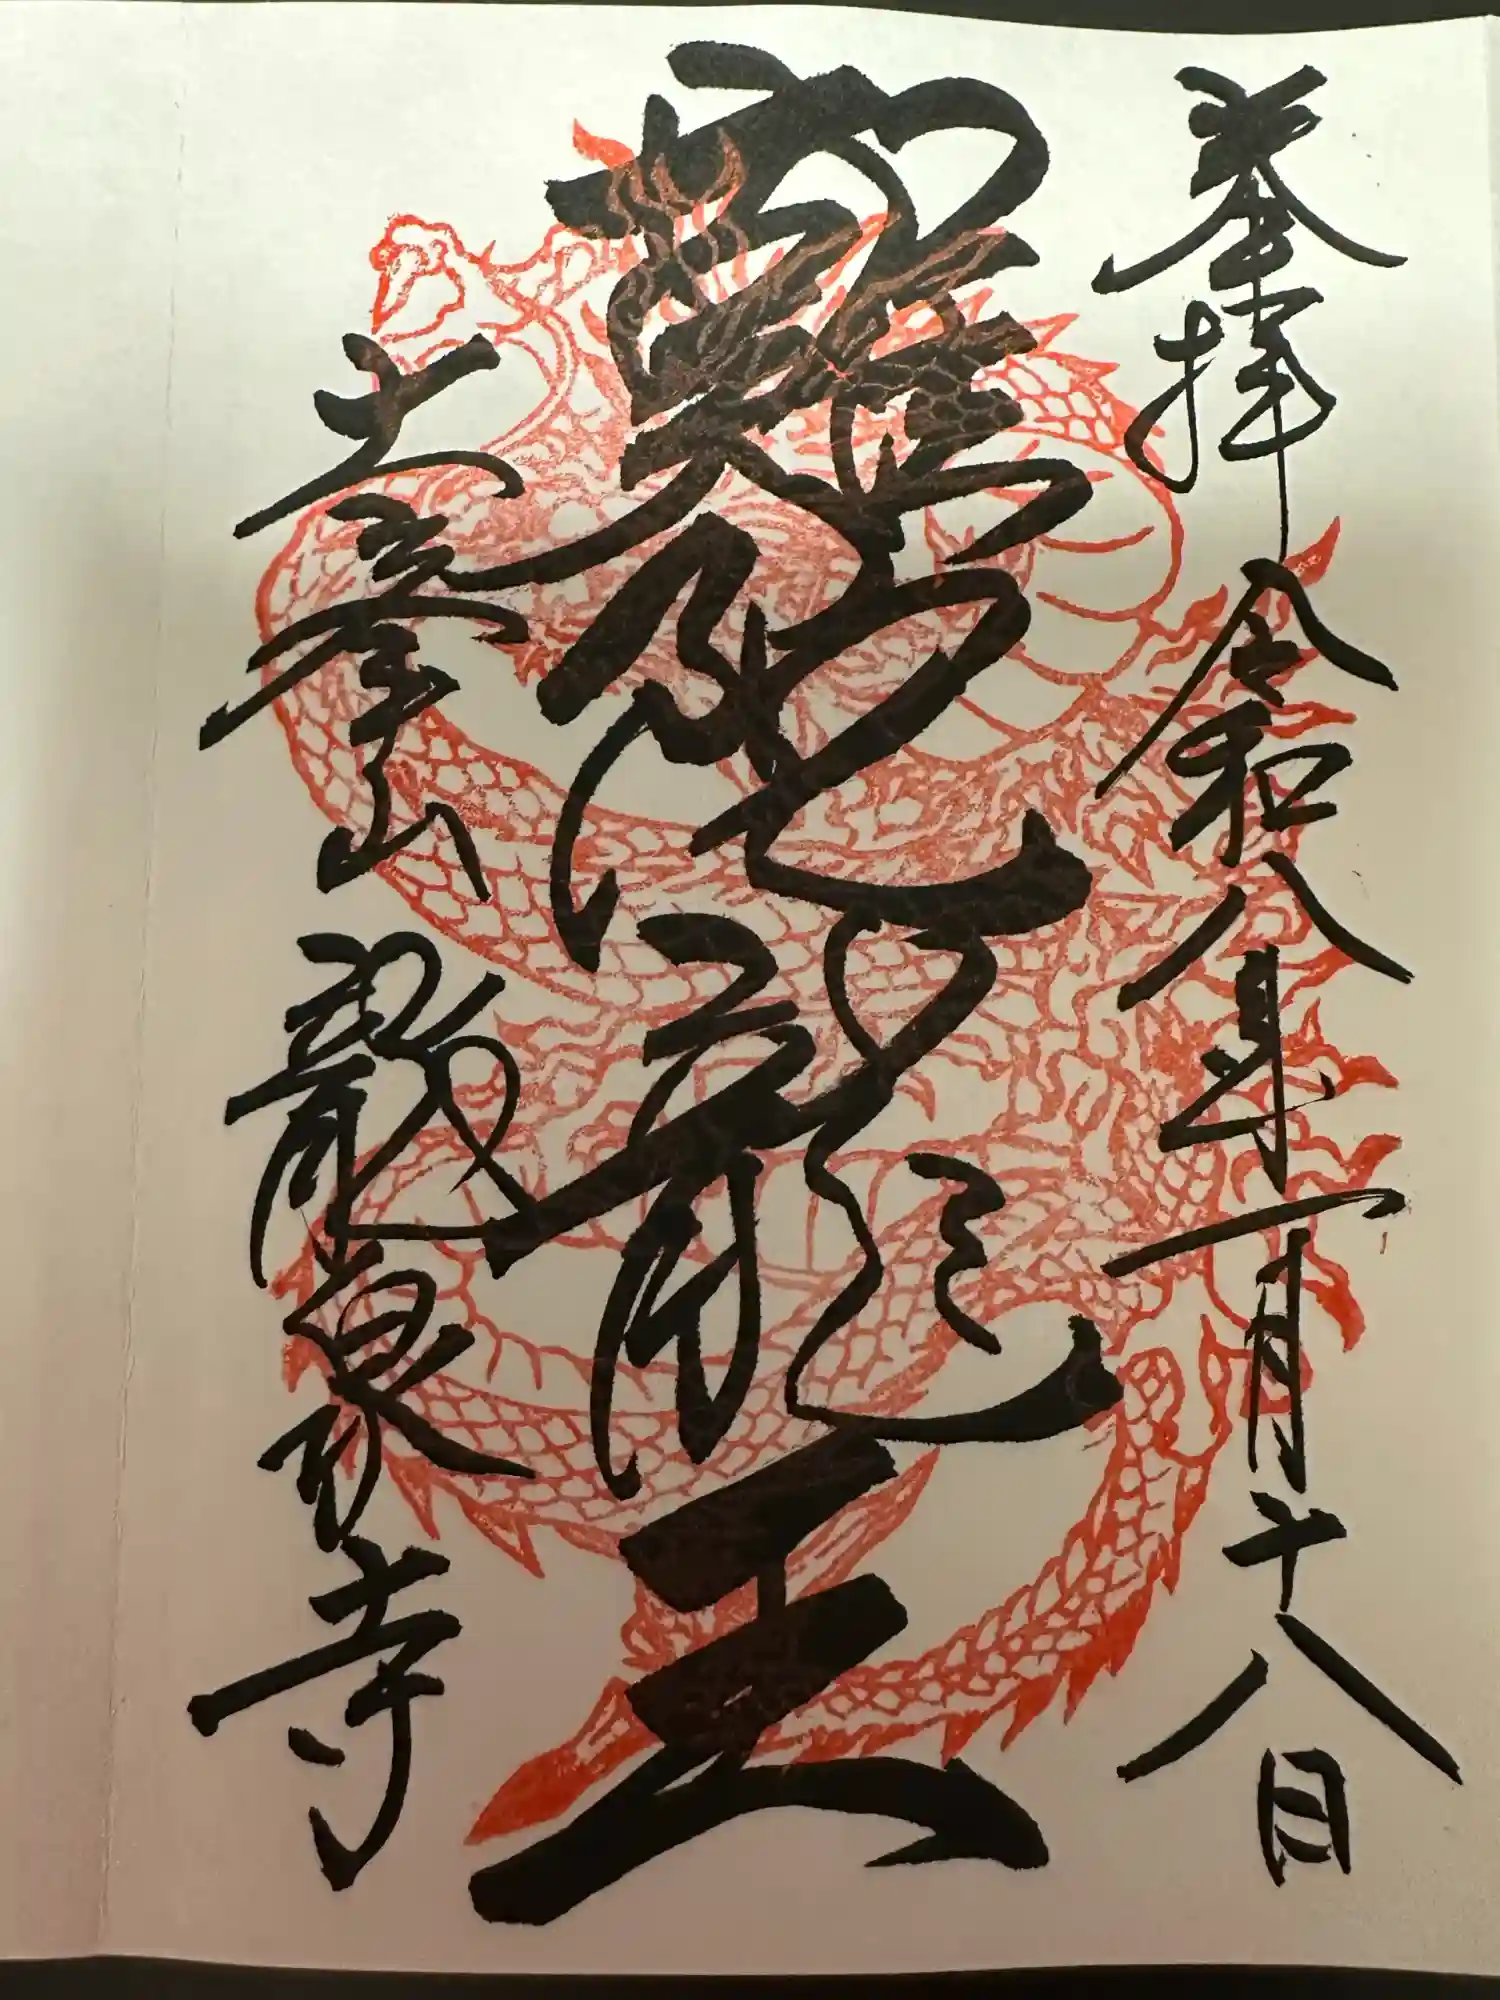 奉拝 令和八年一月十八日
難陀龍王
大峯山 龍泉寺